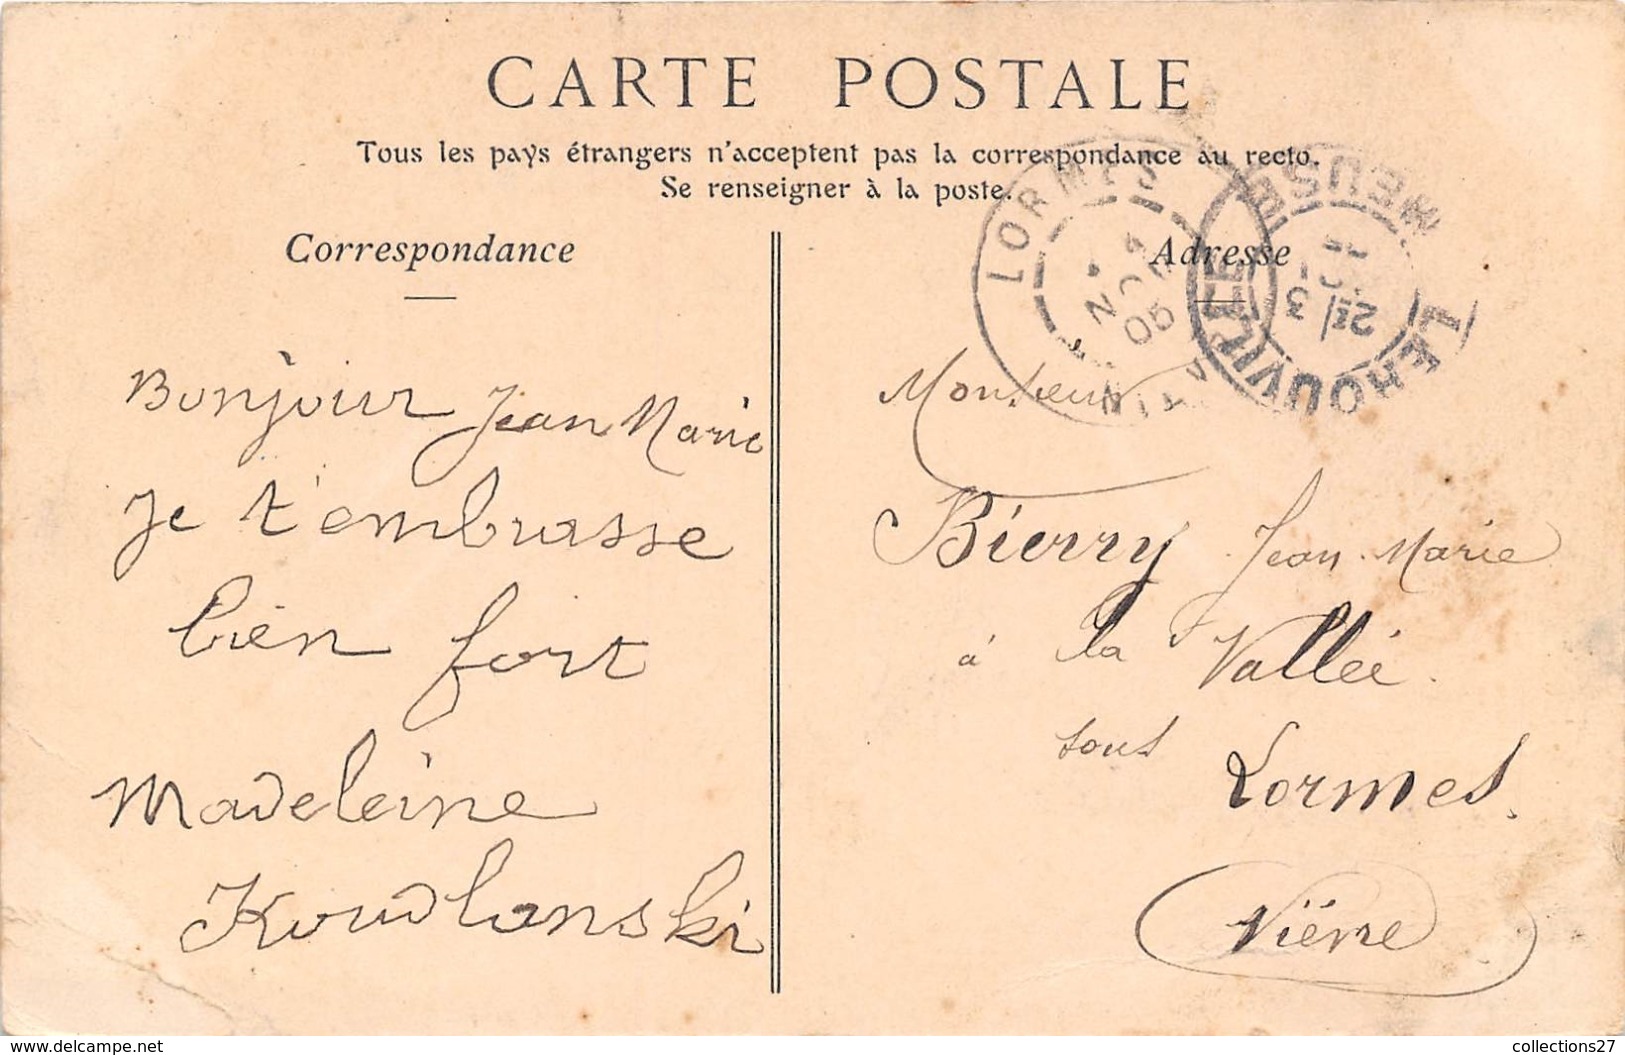 CARTE POSTALE
Tous les pays étrangers n'acceptent pas la correspondance au recto.
Se renseigner à la poste.
Correspondance
Bonjour Jean Marie
Je t'embrasse
bien fort
Madeleine
Koudlanski
Adresse
Monsieur
Bierry Jean Marie
à la Vallée
sous Lormes
Nièvre
LORMES
NIÈVRE
NOV
05
LEROUVILLE
MEUSE
delcampe.net
collections27